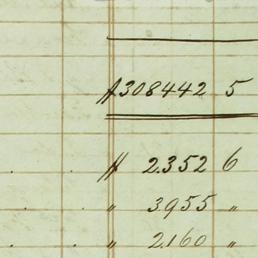 ƒ 308442 5
ƒ 2.352 6
" 3955 "
" 2.160 "